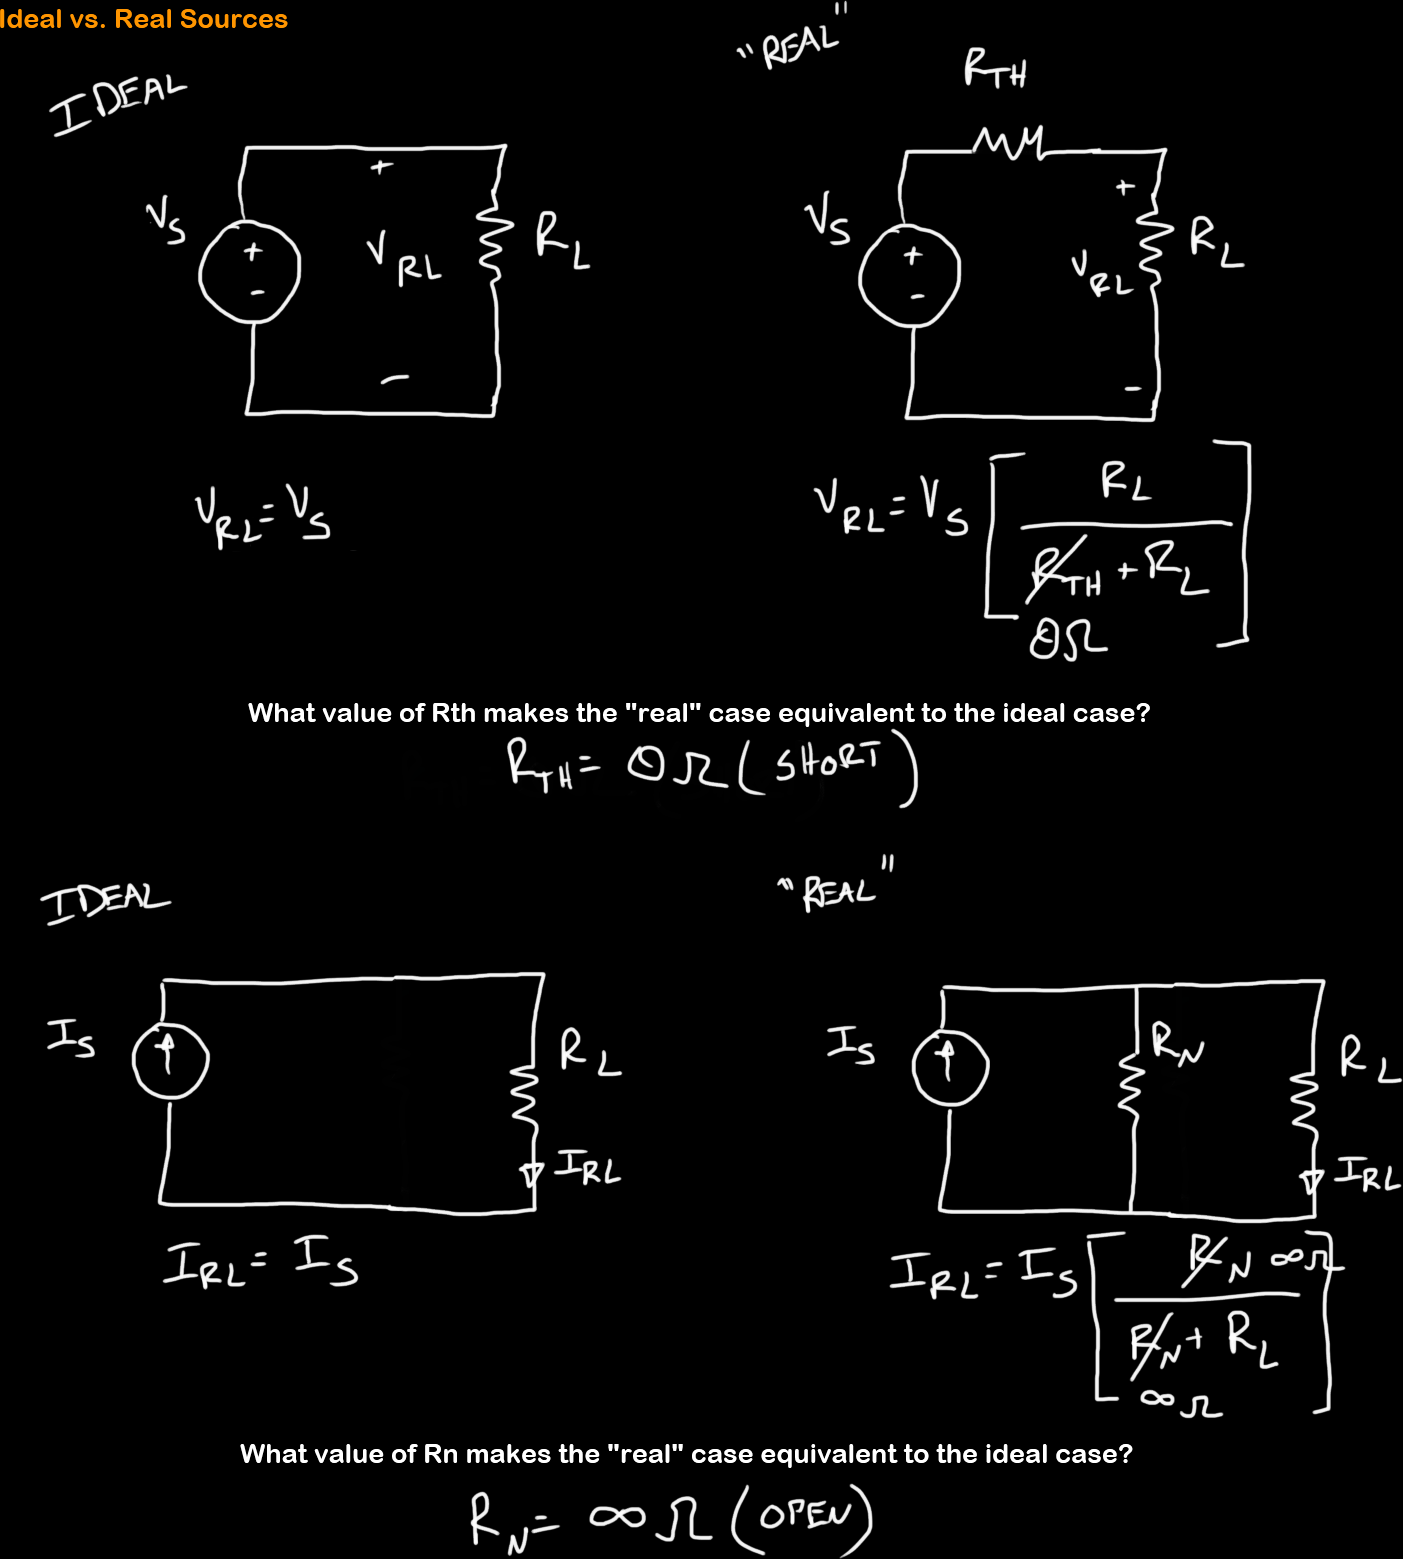 Ideal vs. Real Sources
IDEAL
"REAL"
R_TH
V_S
+
-
+
V_RL
-
R_L
V_S
+
-
+
V_RL
-
R_L
V_RL = V_S
V_RL = V_S [ R_L / (R_TH + R_L) ]
0Ω
What value of Rth makes the "real" case equivalent to the ideal case?
R_TH = 0Ω (SHORT)
IDEAL
"REAL"
I_S
R_L
I_RL
I_S
R_N
R_L
I_RL
I_RL = I_S
I_RL = I_S [ R_N ∞Ω / (R_N + R_L) ]
∞Ω
What value of Rn makes the "real" case equivalent to the ideal case?
R_N = ∞Ω (OPEN)